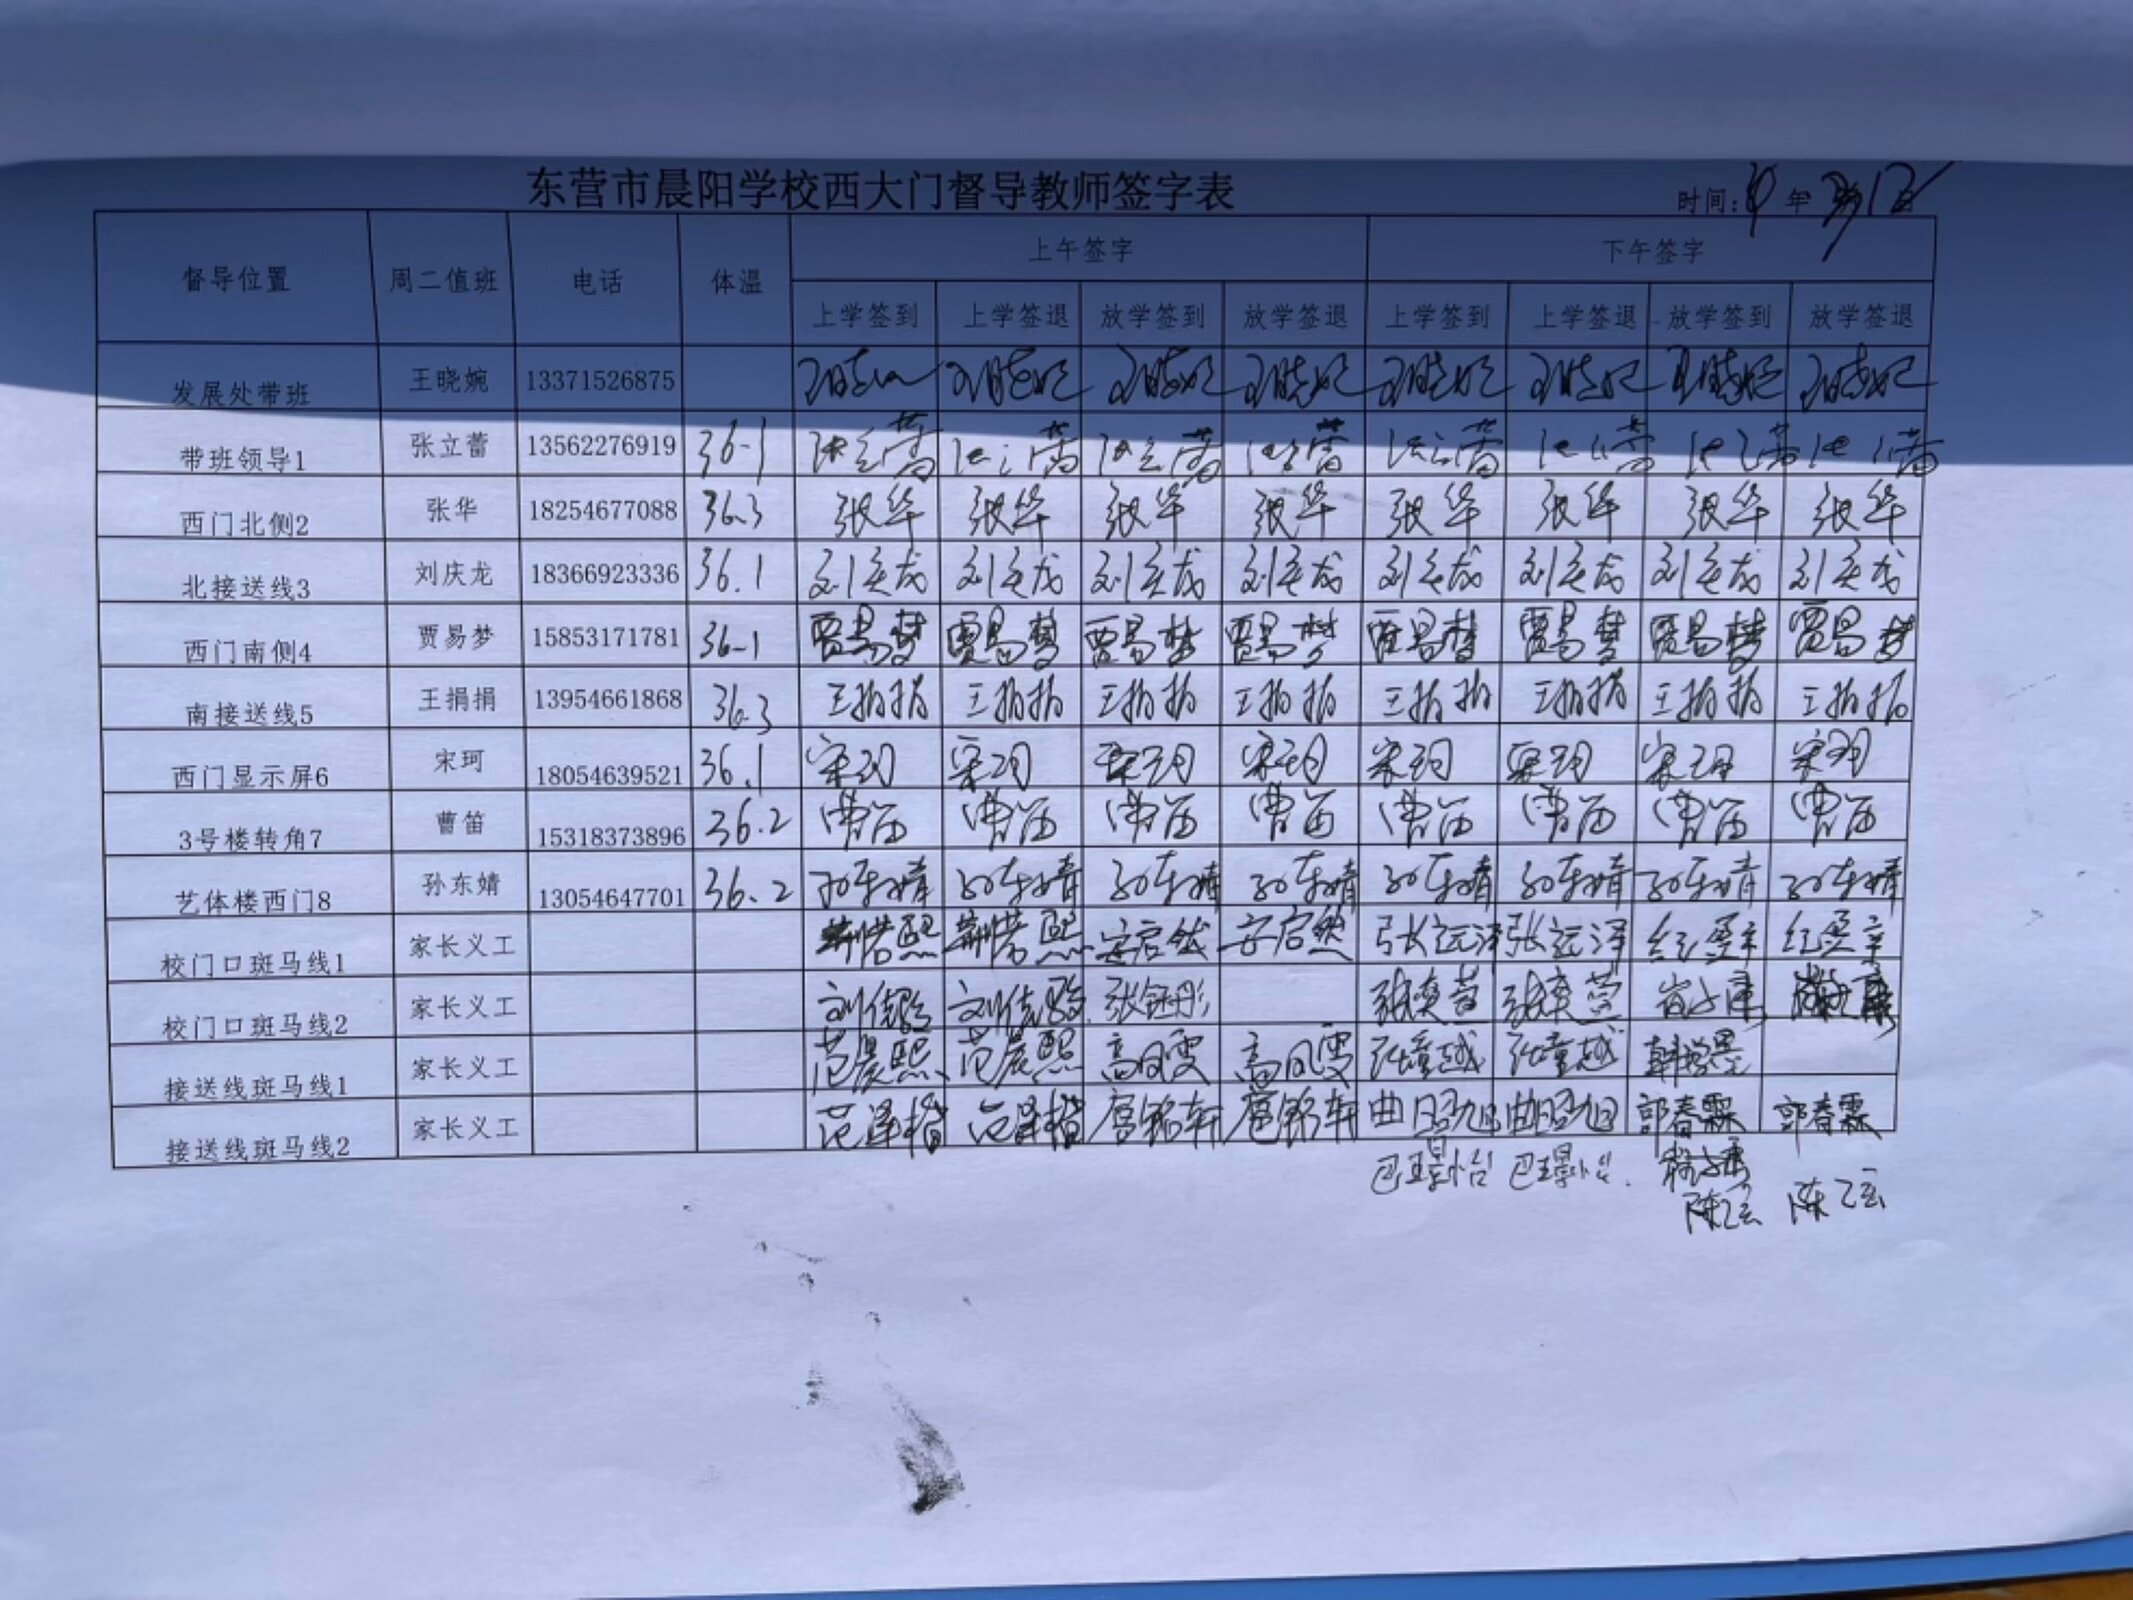 东营市晨阳学校西大门督导教师签字表
时间: 年
督导位置 周二值班 电话 体温 上午签字 下午签字
上学签到 上学签退 放学签到 放学签退 上学签到 上学签退 放学签到 放学签退
发展处带班 王晓婉 13371526875 王晓婉 王晓婉 王晓婉 王晓婉 王晓婉 王晓婉 王晓婉 王晓婉
带班领导1 张立蕾 13562276919 36.1 张立蕾 张立蕾 张立蕾 张立蕾 张立蕾 张立蕾 张立蕾 张立蕾
西门北侧2 张华 18254677088 36.3 张华 张华 张华 张华 张华 张华 张华 张华
北接送线3 刘庆龙 18366923336 36.1 刘庆龙 刘庆龙 刘庆龙 刘庆龙 刘庆龙 刘庆龙 刘庆龙 刘庆龙
西门南侧4 贾易梦 15853171781 36.1 贾易梦 贾易梦 贾易梦 贾易梦 贾易梦 贾易梦 贾易梦 贾易梦
南接送线5 王捐捐 13954661868 36.3 王捐捐 王捐捐 王捐捐 王捐捐 王捐捐 王捐捐 王捐捐 王捐捐
西门显示屏6 宋珂 18054639521 36.1 宋珂 宋珂 宋珂 宋珂 宋珂 宋珂 宋珂 宋珂
3号楼转角7 曹笛 15318373896 36.2 曹笛 曹笛 曹笛 曹笛 曹笛 曹笛 曹笛 曹笛
艺体楼西门8 孙东婧 13054647701 36.2 孙东婧 孙东婧 孙东婧 孙东婧 孙东婧 孙东婧 孙东婧 孙东婧
校门口斑马线1 家长义工 安启然 安启然 张远泽 张远泽
校门口斑马线2 家长义工 张钰彤 张奕萱 张奕萱
接送线斑马线1 家长义工 范晨熙 范晨熙 高凤雯 高凤雯 张童越 张童越
接送线斑马线2 家长义工 范泽楷 范泽楷 唐铭轩 唐铭轩 曲昭旭 曲昭旭 郭春霖 郭春霖
巴璟怡 巴璟怡